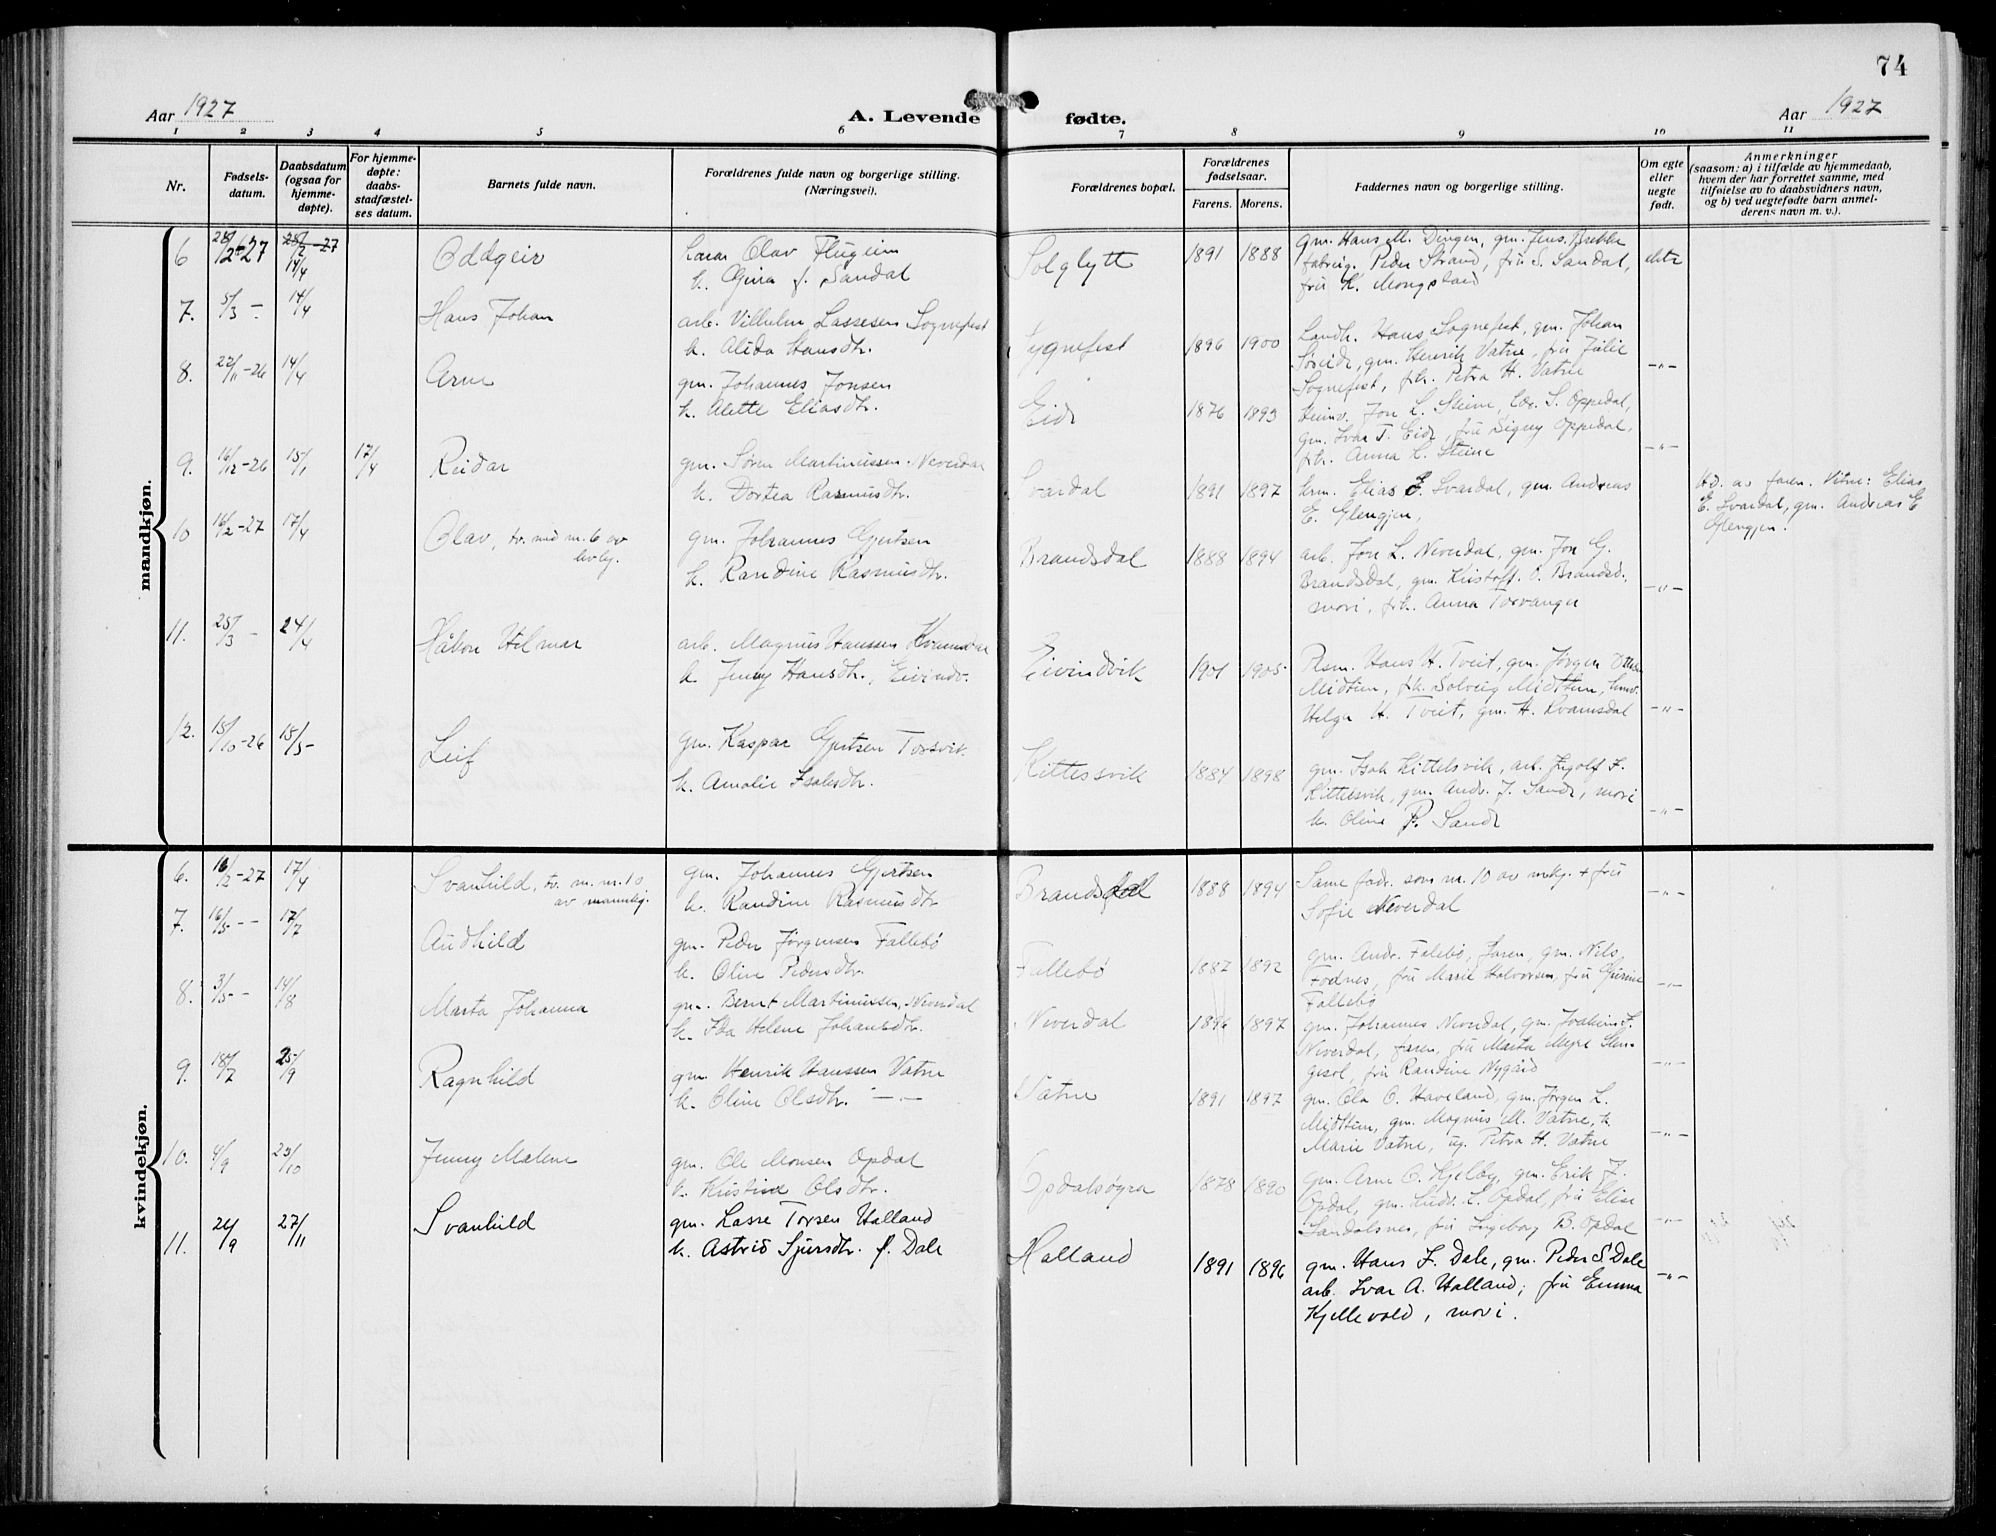 74
Aar 1927
A. Levende fødte.
Aar 1927
1 2 3 4 5 6 7 8 9 10 11
Nr.
Fødsels-
datum.
Daabsdatum
(ogsaa for
hjemme-
døpte).
For hjemme-
døpte:
daabs-
stadfæstel-
ses datum.
Barnets fulde navn.
Forældrenes fulde navn og borgerlige stilling.
(Næringsvei).
Forældrenes bopæl.
Forældrenes
fødselsaar.
Farens. Morens.
Faddernes navn og borgerlige stilling.
Om egte
eller
uegte
født.
Anmerkninger
(saasom: a) i tilfælde av hjemmedaab,
hvem der har forrettet samme, med
tilføielse av to daabsvidners navn,
og b) ved uegtefødte barn anmel-
derens navn m. v.).
mandkjøn.
6 28/2-27 14/4 Oddgeir
Lærar Olav Flugeim
k. Gina f. Sandal
Solglytt 1891 1888
gm. Hans M. Dingen, gm. Jens Brekke
fabreig. Peder Strand, fru S. Sandal,
fru K. Mongstad
ekte
7. 5/3 - 14/4 Hans Johan
arb. Vilhelm Lassesen Sognefest
k. Alida Hansdtr.
Sygnefest 1896 1900
Landh. Hans Sognefest, gm. Johan
Søreide, gm. Henrik Vatne, fru Julie
Sognefest, frk. Petra H. Vatne
-"-
8. 22/11-26 14/4 Arne
gm. Johannes Jonsen
k. Alette Eliasdtr.
Eide 1876 1893
Heimv. Jon L. Steine, lær. S. Oppedal,
gm. Ivar T. Eide, fru Signy Oppedal,
frk. Anna L. Steine
-"-
9. 16/12-26 15/1 17/4 Reidar
gm. Søren Martinussen Neverdal
k. Dortea Rasmusdtr.
Svardal 1891 1897
krm. Elias E. Svardal, gm. Andreas
E. Glengjen,
Hd. av faren. Vitne: Elias
E. Svardal, gm. Andreas E
Glengjen.
10 16/2-27 17/4 Olav, tv. med nr. 6 av
kvkj.
gm. Johannes Gjertsen
k. Randine Rasmusdtr.
Brandsdal 1888 1894
arb. Jon L. Neverdal, gm. Jon G.
Brandsdal, gm. Kristoff. O. Brandsd.,
mori, frk. Anna Torvanger
-"-
11. 25/3 - 24/4 Håkon Hilmar
arb. Magnus Hanssen Kvamsdal
k. Jenny Hansdtr., Eivindv.
Eivindvik 1901 1905
Plsm. Hans H. Tveit, gm. Jørgen
Midttun, frk. Solveig Midttun, hmv.
Helge H. Tveit, gm. H. Kvamsdal
-"-
12. 15/10-26 15/5- Leif
gm. Kaspar Gjertsen Torsvik
k. Amalie Isaksdtr.
Kittelsvik 1884 1898
gm. Isak Kittelsvik, arb. Ingolf I.
Kittelsvik, gm. Andr. J. Sande, mori
k. Oline P. Sande
-"-
kvindekjøn.
6. 16/2-27 17/4 Svanhild, tv. m. nr. 10
av mannkj.
gm. Johannes Gjertsen
k. Randine Rasmusdtr
Brandsdal 1888 1894
Same fadr. som nr. 10 av mkj. + fru
Sofie Neverdal
-"-
7. 16/5 - - 17/7 Audhild
gm. Peder Jørgensen Fallebø
k. Oline Pedersdtr.
Fallebø 1887 1892
gm. Andr. Falebø, faren, gm. Nils
Fodnes, fru Marie Halvorsen, fru Gurine
Fallebø
-"-
8. 3/5 - - 14/8 Marta Johanna
gm. Bernt Martinussen, Neverdal
k. Ida Helene Johansdtr.
Neverdal 1896 1897
gm. Johannes Neverdal, gm. Joakim I.
Neverdal, faren, fru Marta Myre Slen-
gesol, fru Randine Nygård
-"-
9. 18/7 25/9 Ragnhild
gm. Henrik Hanssen Vatne
k. Oline Olsdtr. -"-
Vatne 1891 1897
gm. Ola O. Haveland, gm. Jørgen L.
Midttun, gm. Magnus M. Vatne, k.
Marie Vatne, ug. Petra H. Vatne
-"-
10. 4/9 23/10 Jenny Malene
gm. Ole Monsen Opdal
k. Kristine Olsdtr.
Opdalsøyra 1878 1890
gm. Arne O. Kjelby, gm. Erik J.
Opdal, gm. Ludv. L. Opdal, fru Elise
Sandalsnes, fru Ingeborg B. Opdal
-"-
11. 24/9 27/11 Svanhild
gm. Lasse Torsen Halland
k. Astrid Sjursdtr. f. Dale
Halland 1891 1896
gm. Hans I. Dale, gm. Peder S. Dale
arb. Ivar A. Halland, fru Emma
Kjellevold, mori.
-"-